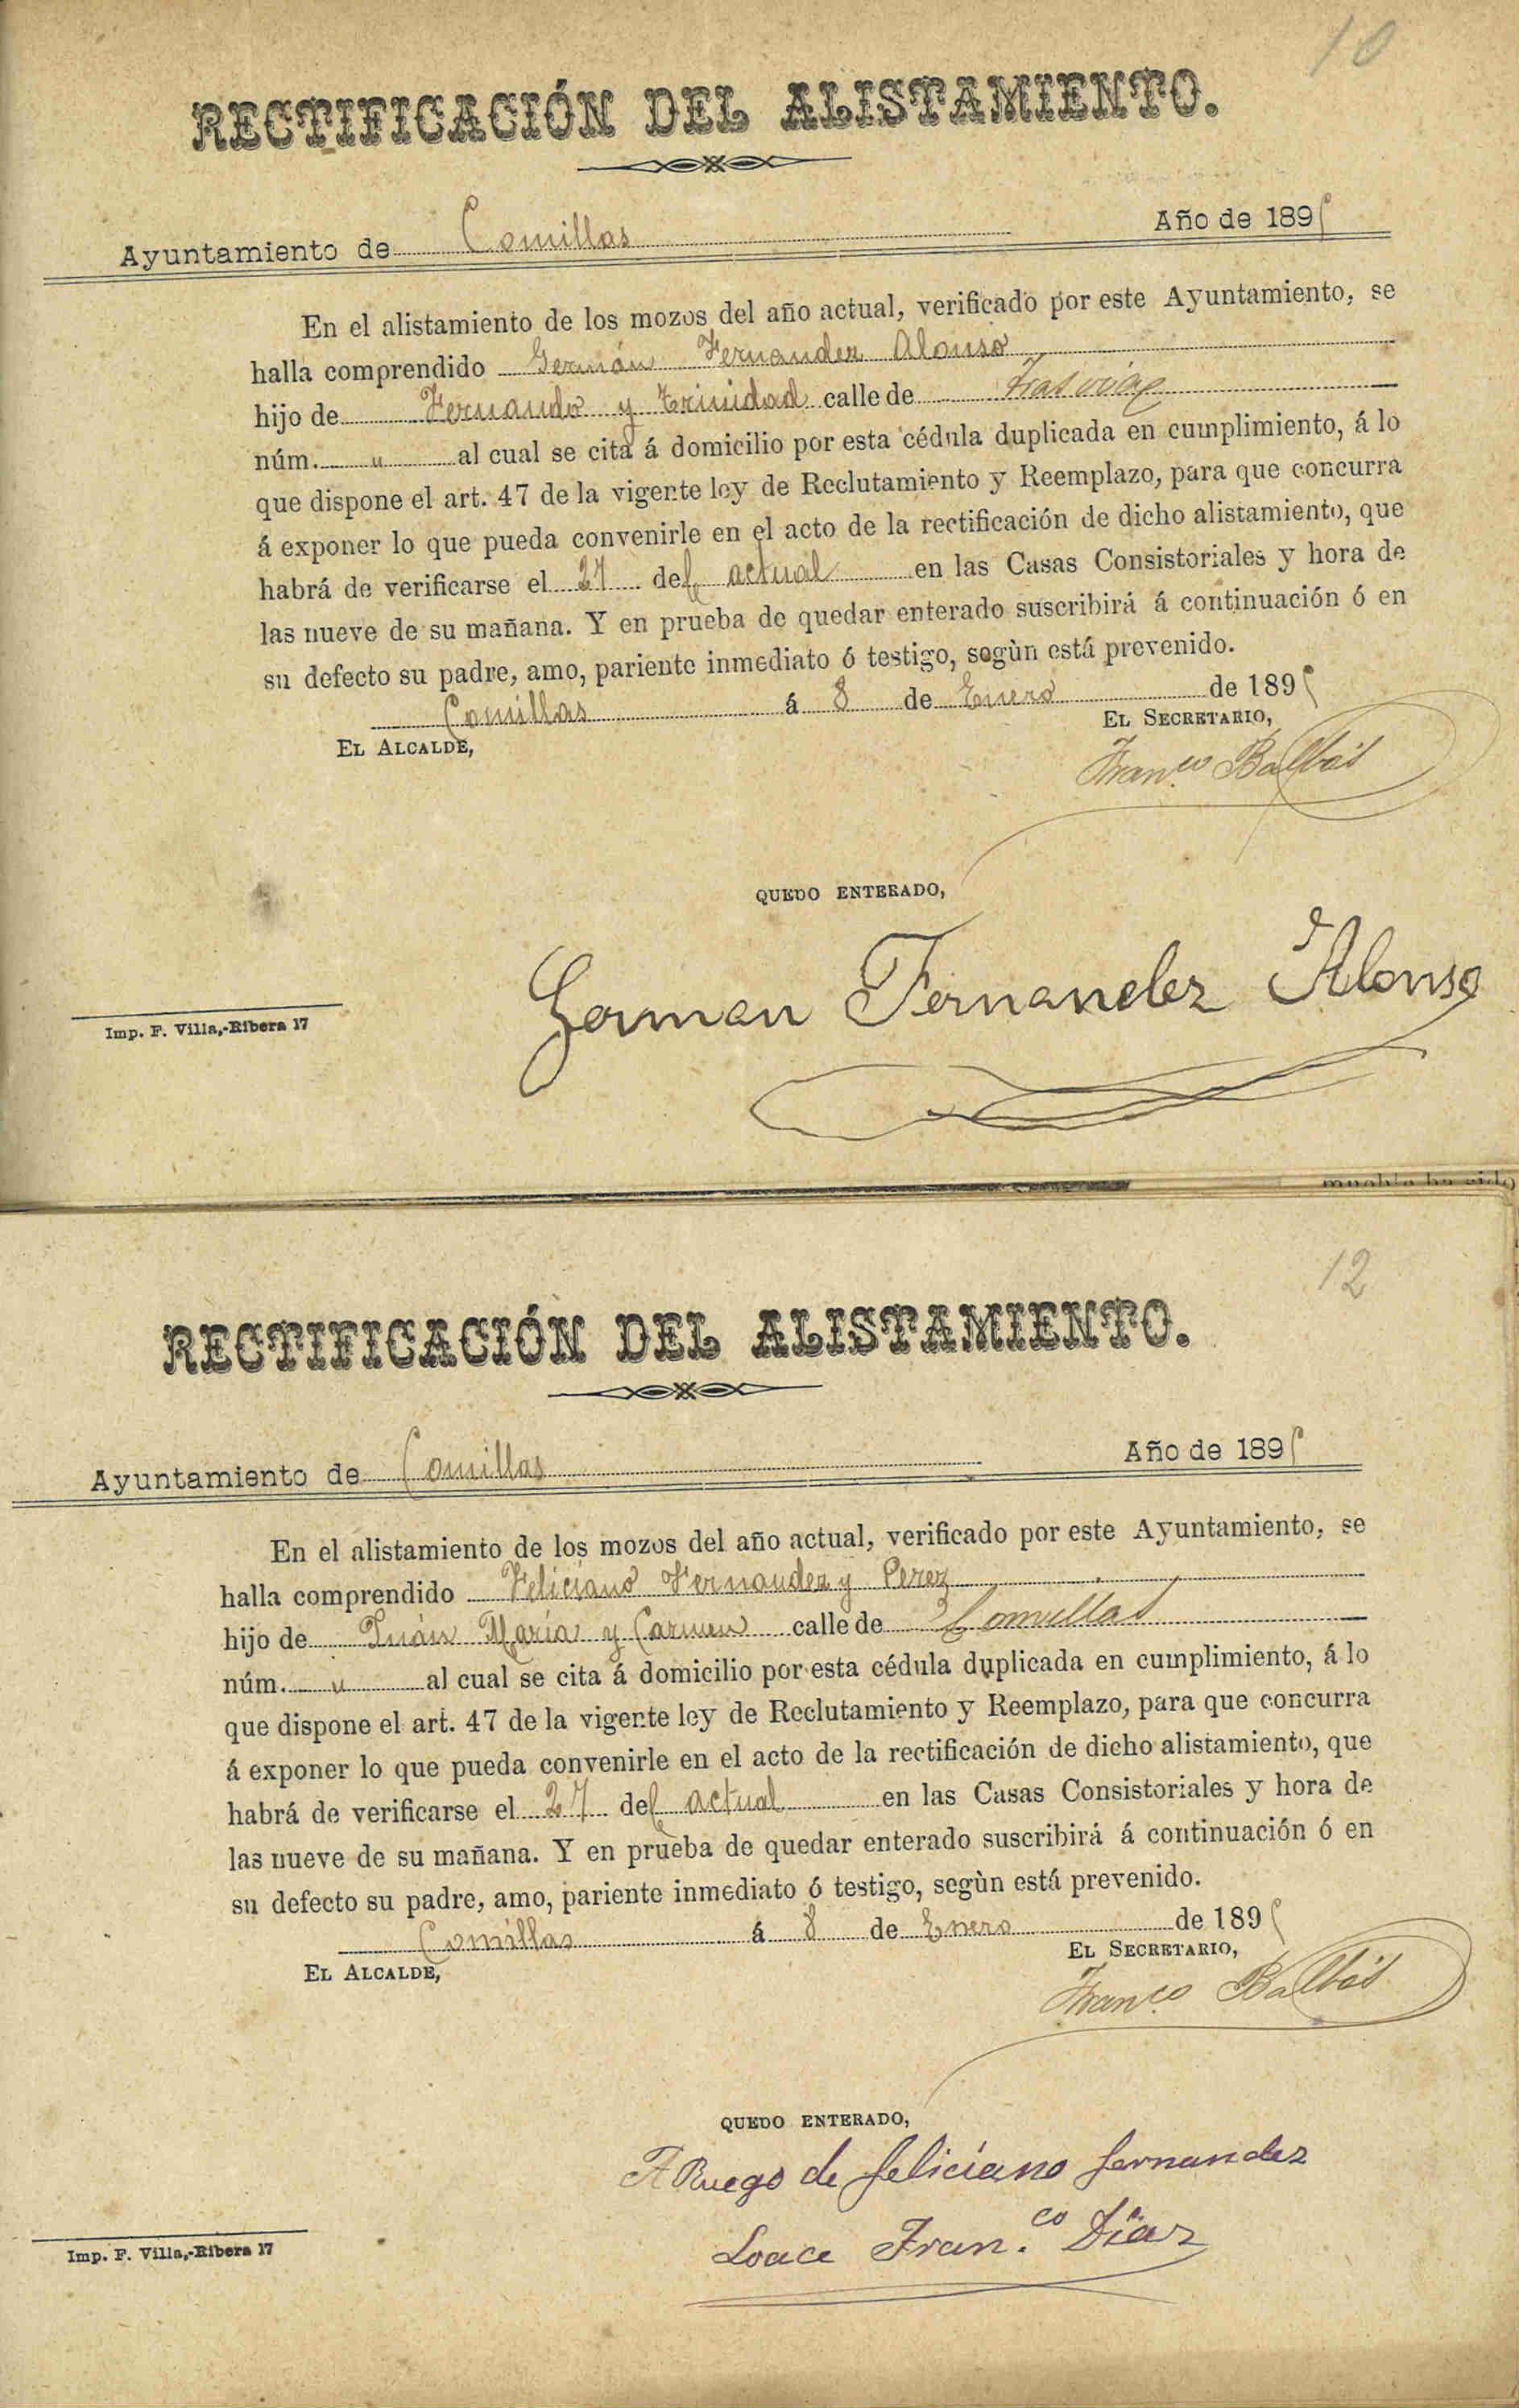 10
RECTIFICACIÓN DEL ALISTAMIENTO.
Ayuntamiento de Comillas Año de 1895
En el alistamiento de los mozos del año actual, verificado por este Ayuntamiento, se
halla comprendido Germán Fernandez Alonso
hijo de Fernando y Trinidad calle de Trasvia
núm. " al cual se cita á domicilio por esta cédula duplicada en cumplimiento, á lo
que dispone el art. 47 de la vigente ley de Reclutamiento y Reemplazo, para que concurra
á exponer lo que pueda convenirle en el acto de la rectificación de dicho alistamiento, que
habrá de verificarse el 27 del actual en las Casas Consistoriales y hora de
las nueve de su mañana. Y en prueba de quedar enterado suscribirá á continuación ó en
su defecto su padre, amo, pariente inmediato ó testigo, segùn está prevenido.
Comillas á 8 de Enero de 1895
EL ALCALDE, EL SECRETARIO,
Fran.co Balbás
QUEDO ENTERADO,
German Fernandez Alonso
Imp. F. Villa,-Ribera 17
12
RECTIFICACIÓN DEL ALISTAMIENTO.
Ayuntamiento de Comillas Año de 1895
En el alistamiento de los mozos del año actual, verificado por este Ayuntamiento, se
halla comprendido Feliciano Fernandez y Perez
hijo de Juán María y Carmen calle de Comillas
núm. " al cual se cita á domicilio por esta cédula duplicada en cumplimiento, á lo
que dispone el art. 47 de la vigente ley de Reclutamiento y Reemplazo, para que concurra
á exponer lo que pueda convenirle en el acto de la rectificación de dicho alistamiento, que
habrá de verificarse el 27 del actual en las Casas Consistoriales y hora de
las nueve de su mañana. Y en prueba de quedar enterado suscribirá á continuación ó en
su defecto su padre, amo, pariente inmediato ó testigo, segùn está prevenido.
Comillas á 8 de Enero de 1895
EL ALCALDE, EL SECRETARIO,
Fran.co Balbás
QUEDO ENTERADO,
A Ruego de feliciano fernandez
Loace Fran.co Díaz
Imp. F. Villa,-Ribera 17